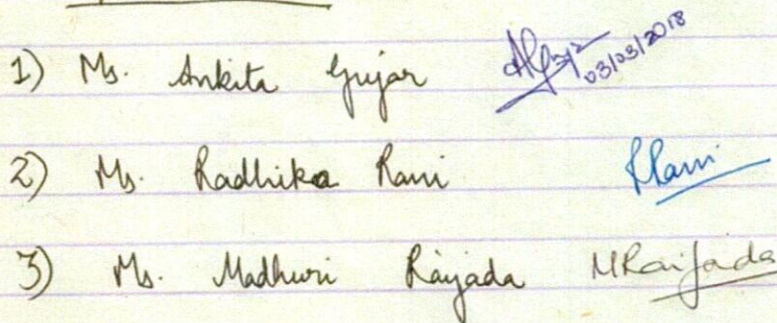 1) Ms. Ankita Gujar 03/03/2018
2) Ms. Radhika Rani RRani
3) Ms. Madhuri Raijada MRaijada